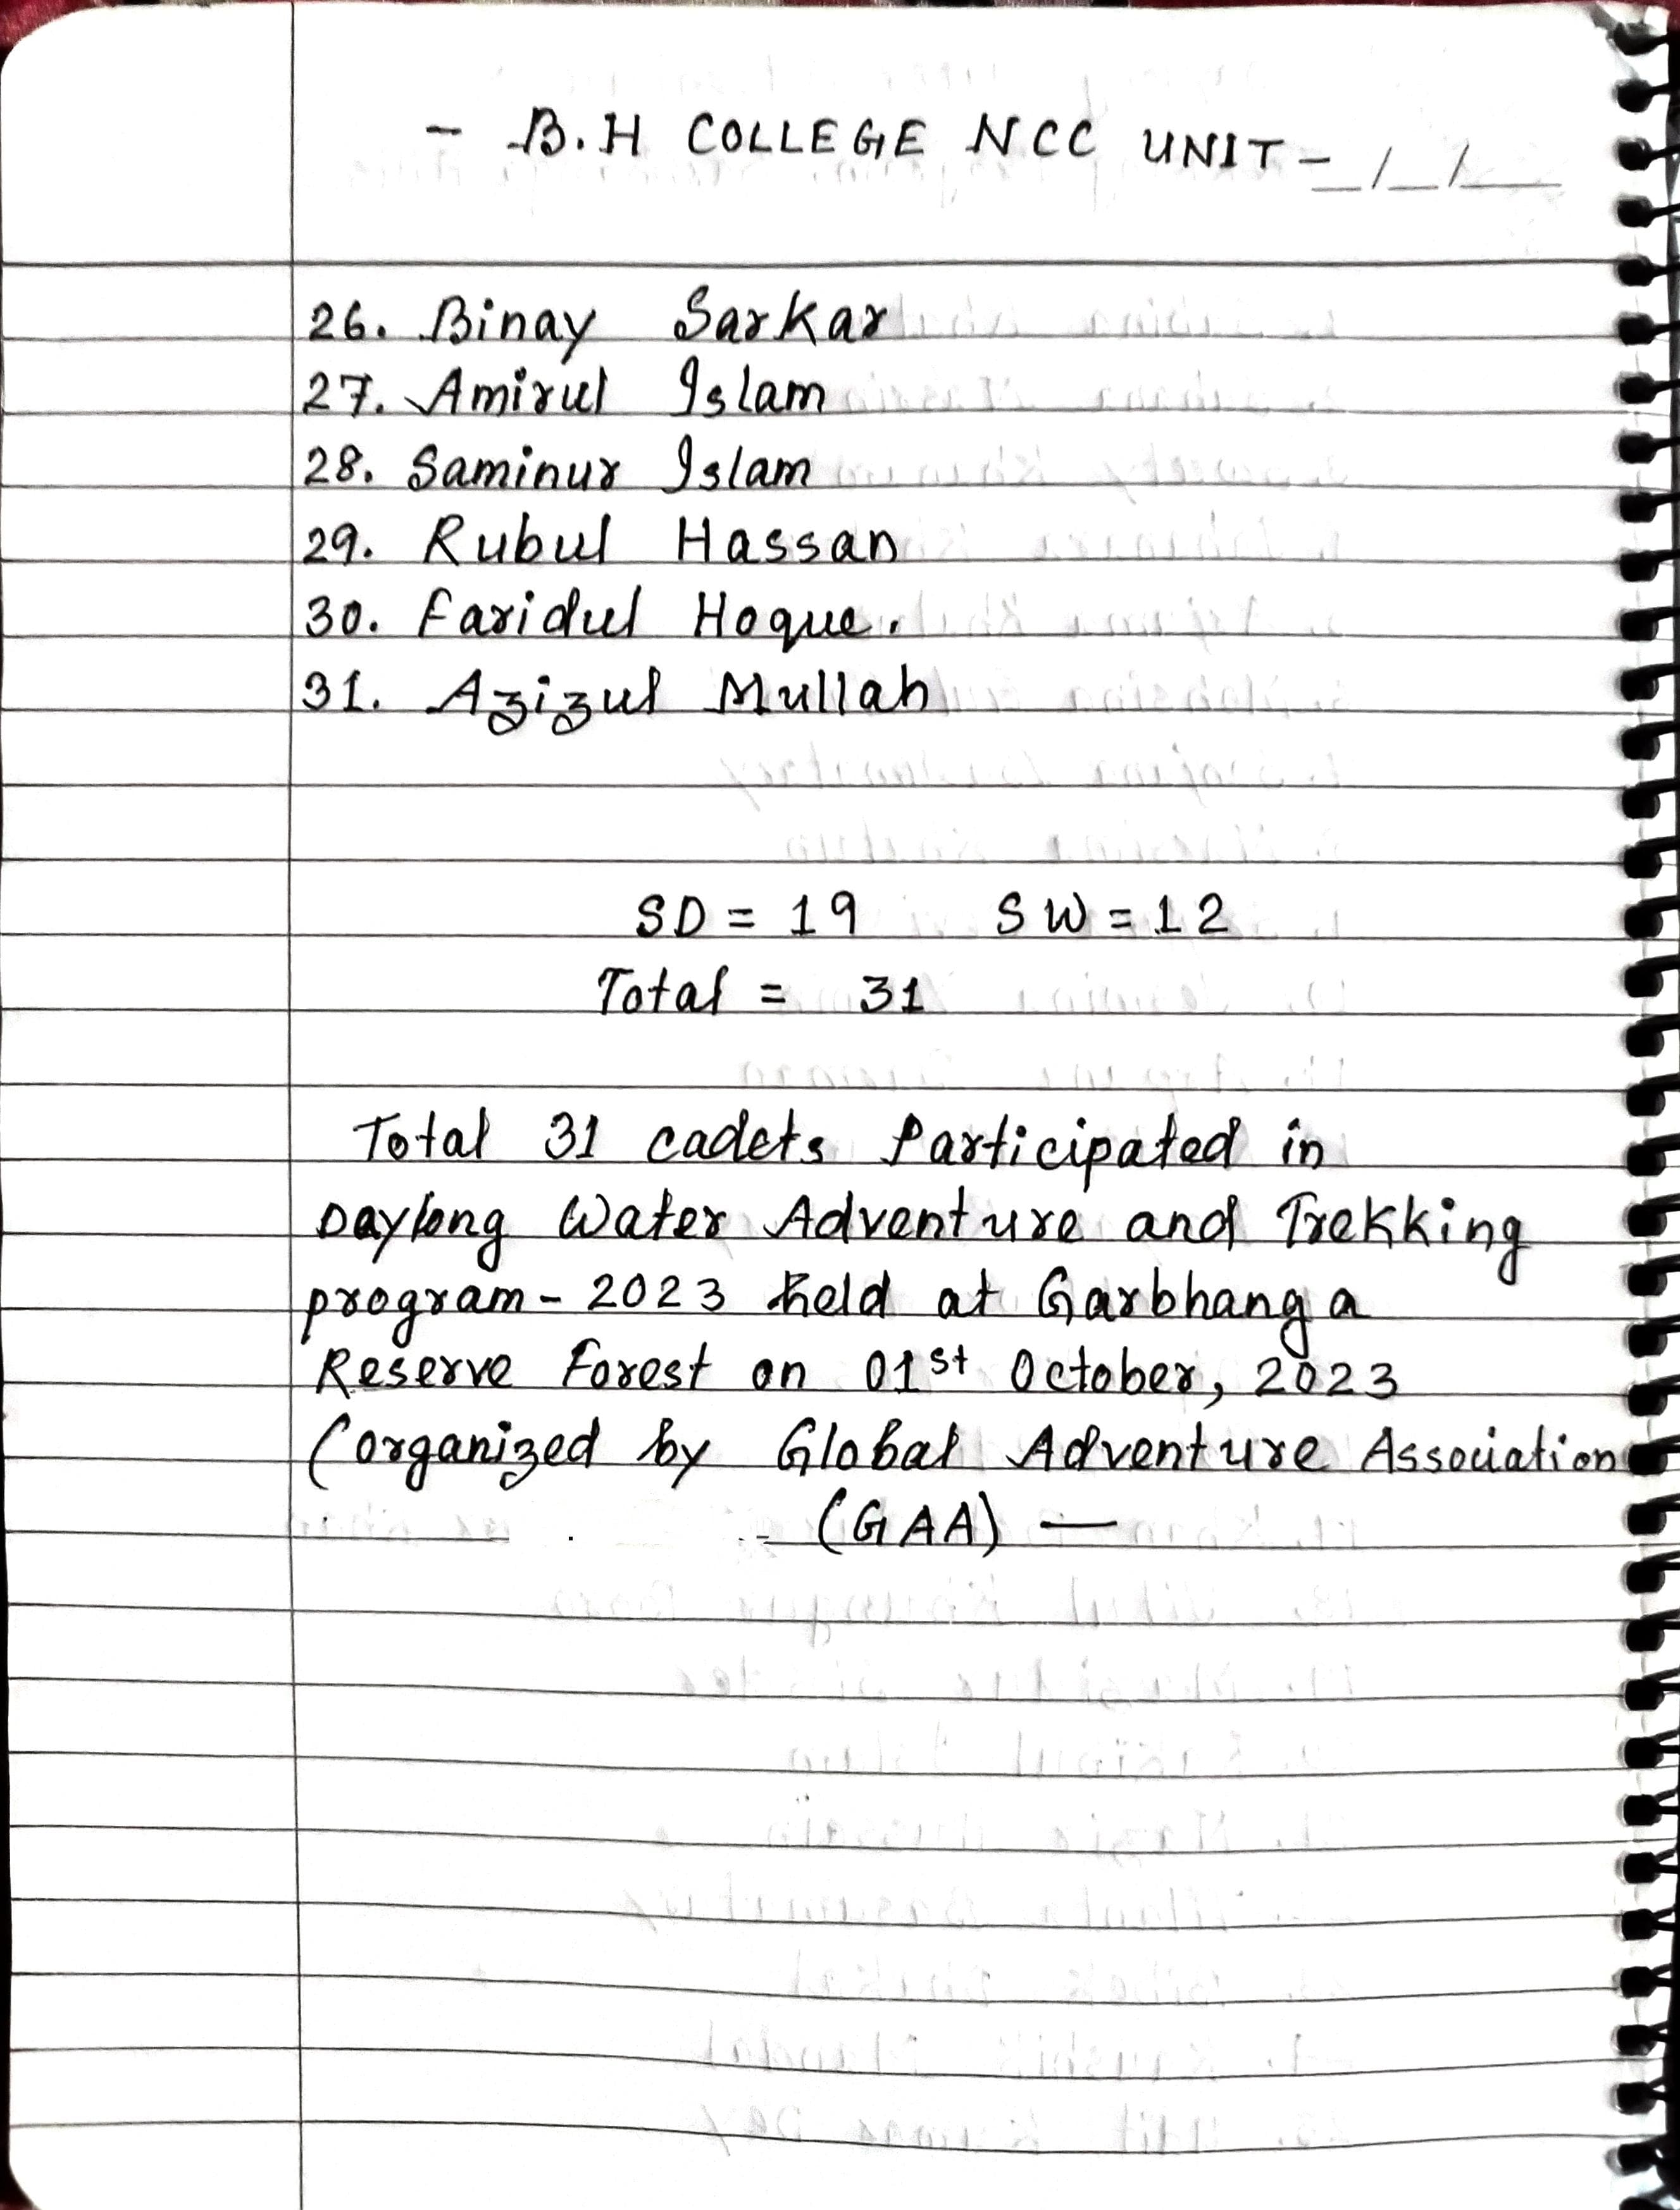 - B.H COLLEGE NCC UNIT -
26. Binay Sarkar
27. Amirul Islam
28. Saminur Islam
29. Rubul Hassan
30. Faridul Hoque.
31. Azizul Mullah
SD = 19 SW = 12
Total = 31
Total 31 cadets Participated in
Daylong Water Adventure and Trekking
program - 2023 held at Garbhanga
Reserve Forest on 01st October, 2023
(organized by Global Adventure Association
(GAA) —